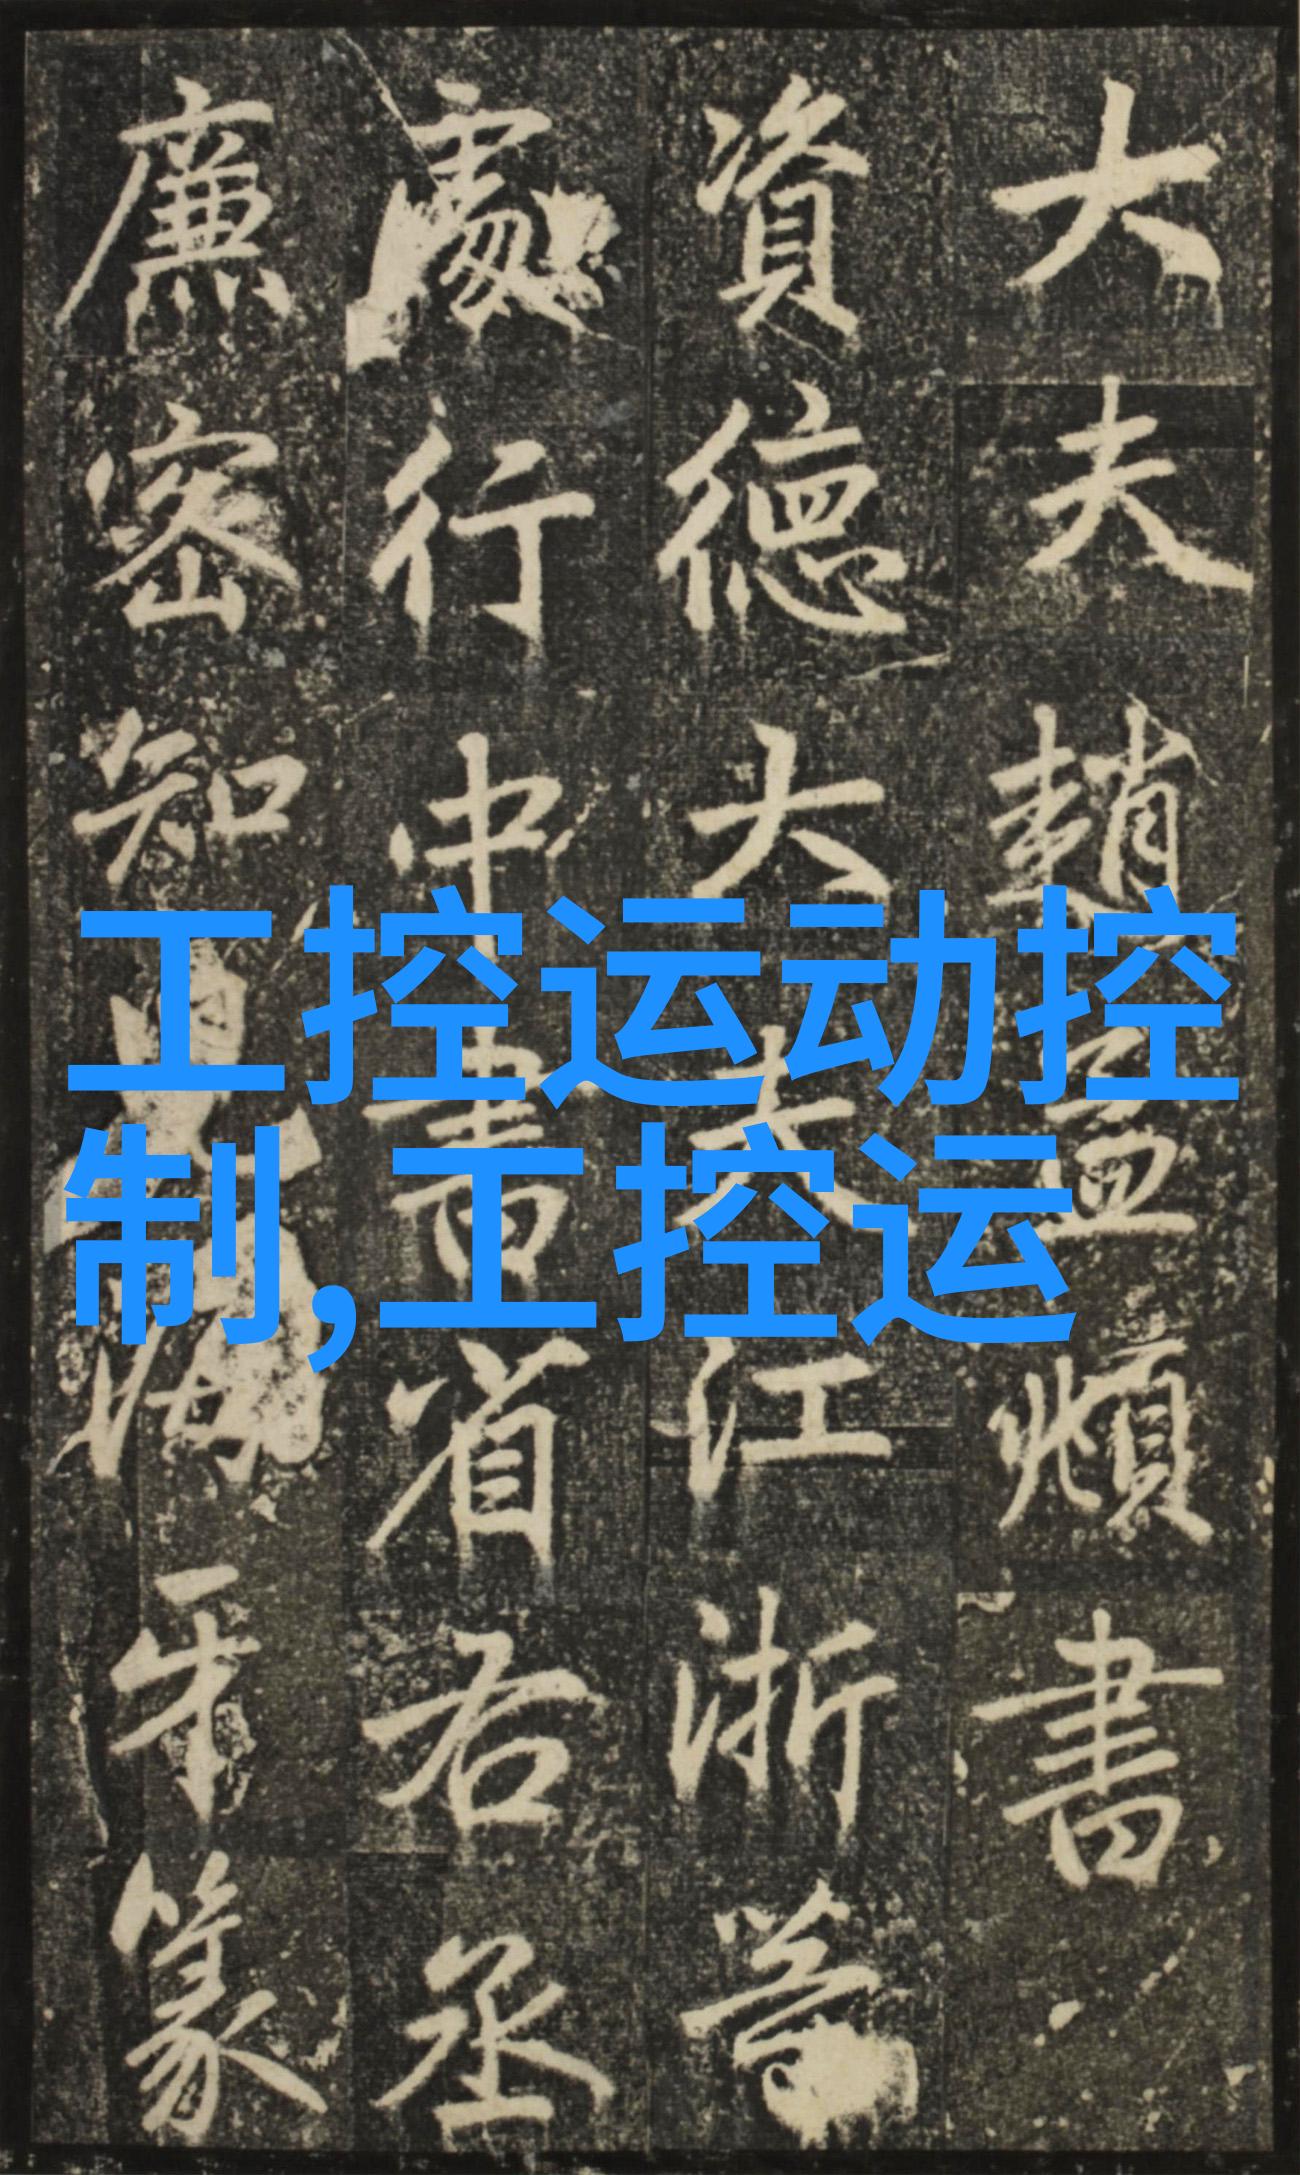 大夫趙孟頫書
資德大夫江浙等
處行中書省右丞
廉密知
牙篆
工控运动控
制,工控运